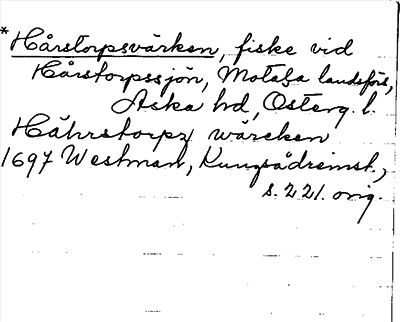 * Hårstorpsvärken, fiske vid
Hårstorpssjön, Motala landsförs,
Aska hd, Österg. l.
Håhrstorpz wärcken
1697 Westman, Kungsådreinst.,
s. 221. orig.